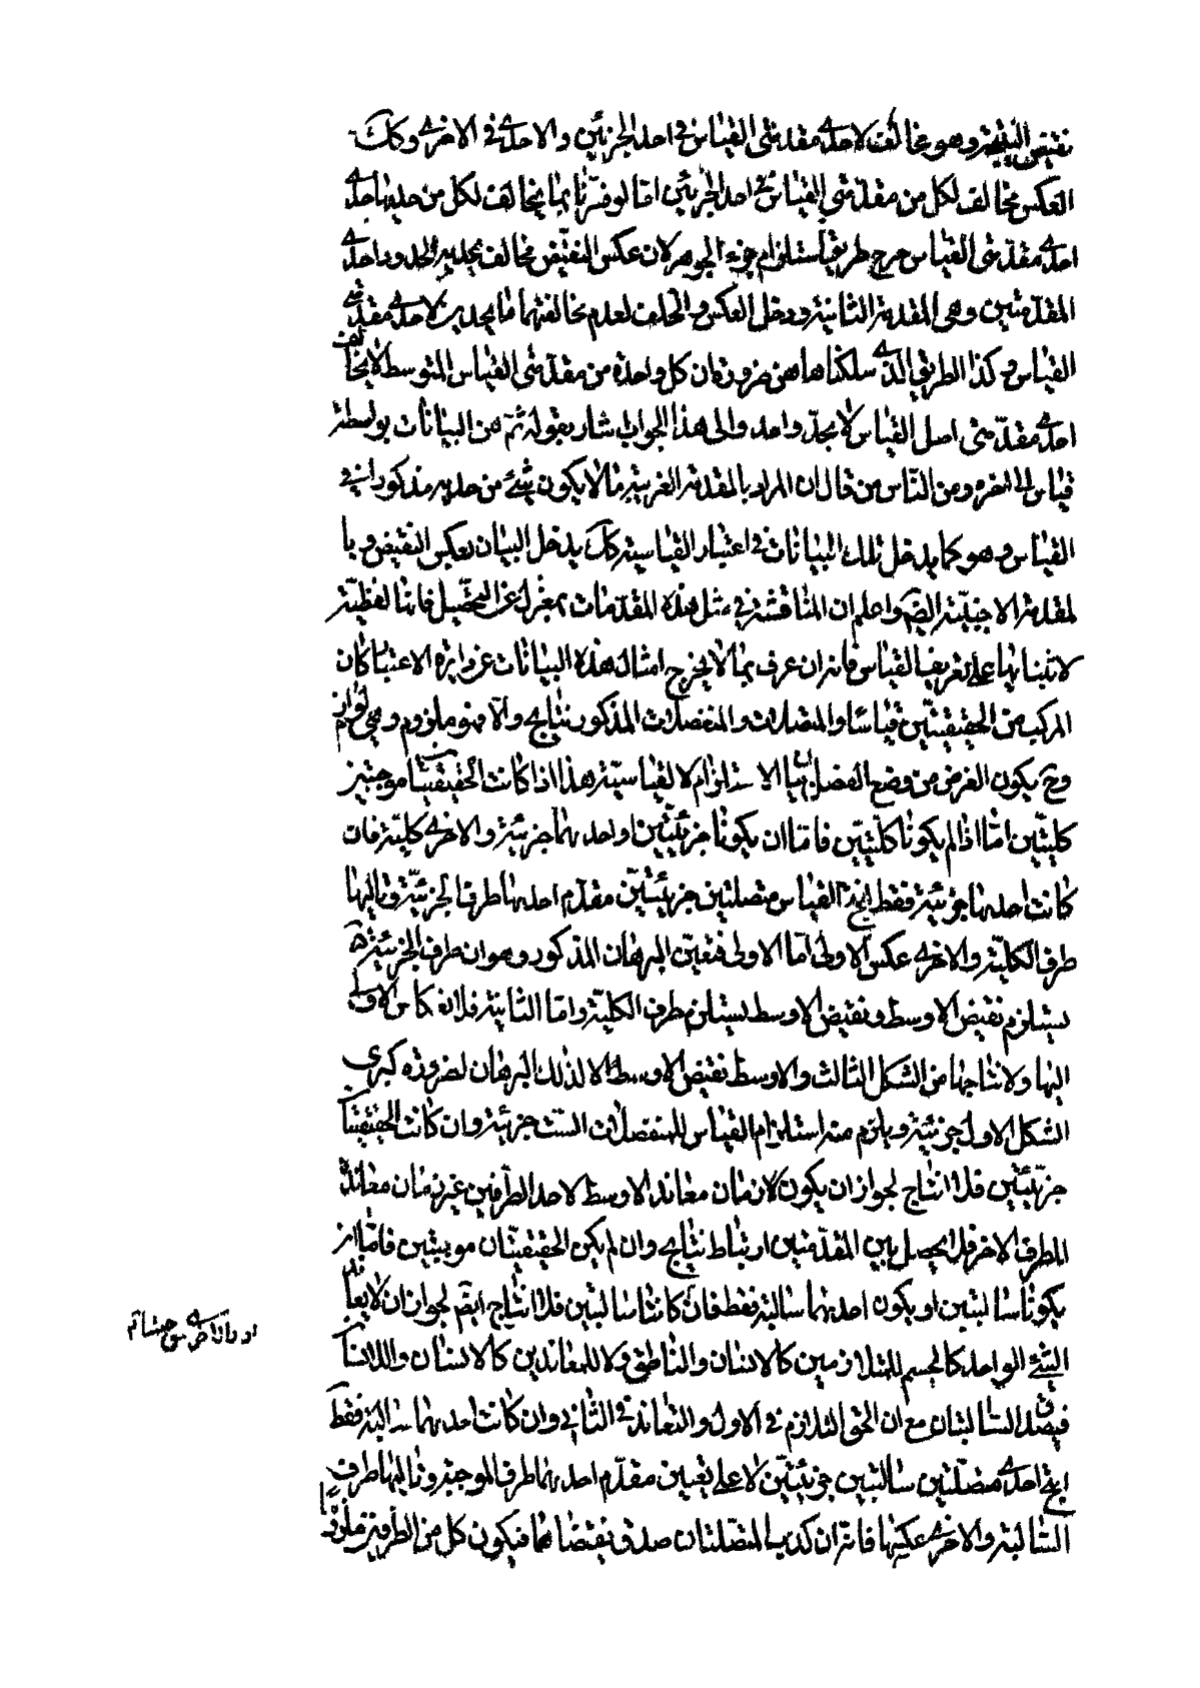 نقيض النتيجة وهو مخالف لاحدى مقدمتى القياس فى احد الجزئين والاخذ فى الاخرى وكك
العكس مخالف لكل من مقدمتى القياس فى احد الجزئين امّا لو فسّرنا بما يخالف لكل من حديها حدى
احدى مقدمتى القياس خرج طريق استلزام جزء الجوهر لان عكس النقيض مخالف بحديه لحدود احدى
المقدمتين وهى المقدمة الثانية ودخل العكس والخلف لعدم مخالفتهما بالحدين لاحدى مقدمتى
القياس وكذا الطريق الذى سلكناها هن ضرورة ان كل واحدة من مقدمتى القياس المتوسط لا يخالف
احدى مقدّمتى اصل القياس الا بحدّ واحد والى هذا الجواب اشار بقوله ثمّ هن البيانات بواسطة
قياس الى اخره ومن النّاس من قال ان المراد بالمقدمة الغريبة ما لا يكون شئ من حديه مذكورا فى
القياس وهو كما يدخل تلك البيانات فى اعتبار القياسية كك يدخل البيان بعكس النقيض وبا
لمقدمة الاجنبيّة ايضا واعلم ان المناقشة فى مثل هذه المقدّمات بمعزل عن التحصيل فانها لفظيّة
لابتنائها على تعريف القياس فانه ان عرف بما لا يخرج امثال هذه البيانات عن دايرة الاعتبار كان
المركب من الحقيقيتين قياسا والمتصلات والمنفصلات المذكور نتايج والا فهو ملزوم وهى لوازم
وح يكون الغرض من وضع الفصل بيان الاستلزام لا القياسيّة هذا اذا كانت الحقيقيتان موجبتين
كليتين امّا اذا لم يكونا كلّيتين فامّا ان يكونا جزئيتين او احدهما جزئية والاخرى كليّة فان
كانت احدهما جزئية فقط انتج القياس متصلتين جزئيتين مقدّم احدهما طرف الجزئيّة وتاليها
طرف الكلية والاخرى عكس الاولى امّا الاولى فبعين البرهان المذكور وهو ان طرف الجزئية
يستلزم نقيض الاوسط ونقيض الاوسط يستلزم طرف الكلية وامّا الثانية فلانعكاس الاولى
اليها ولانتاجها من الشكل الثالث والاوسط نقيض الاوسط لا لذلك البرهان لضرورة كبرى
الشكل الاول جزئية ويلزم منه استلزام القياس للمنفصلات الست جزئية وان كانت الحقيقيتان
جزئيتين فلا انتاج لجواز ان يكون زمان معاند الاوسط لاحد الطرفين غير زمان معاندة
الطرف الاخر فلا يحصل بين المقدّمتين ارتباط نتايج وان لم يكن الحقيقيتان موجبتين فامّا ان
يكونا سالبتين او يكون احدهما سالبة فقط فان كانتا سالبتين فلا انتاج ايضا لجواز ان لا يعاند
الشئ الواحد كالجسم للمتلازمين كالانسان والناطق ولا للمعاندين كالانسان واللاانسان
فيصدق السّالبتان مع ان الحق التلازم فى الاول والتعاند فى الثانى وان كانت احدهما سالبة فقط
انتج احدى متصلتين سالبتين جزئيتين لا على تعيين مقدّم احدهما طرف الموجبة وتاليها طرف
السّالبة والاخرى عكسها فانه ان كذب المتصلتان صدق نقيضاهما فيكون كل من الطرفين ملزوما